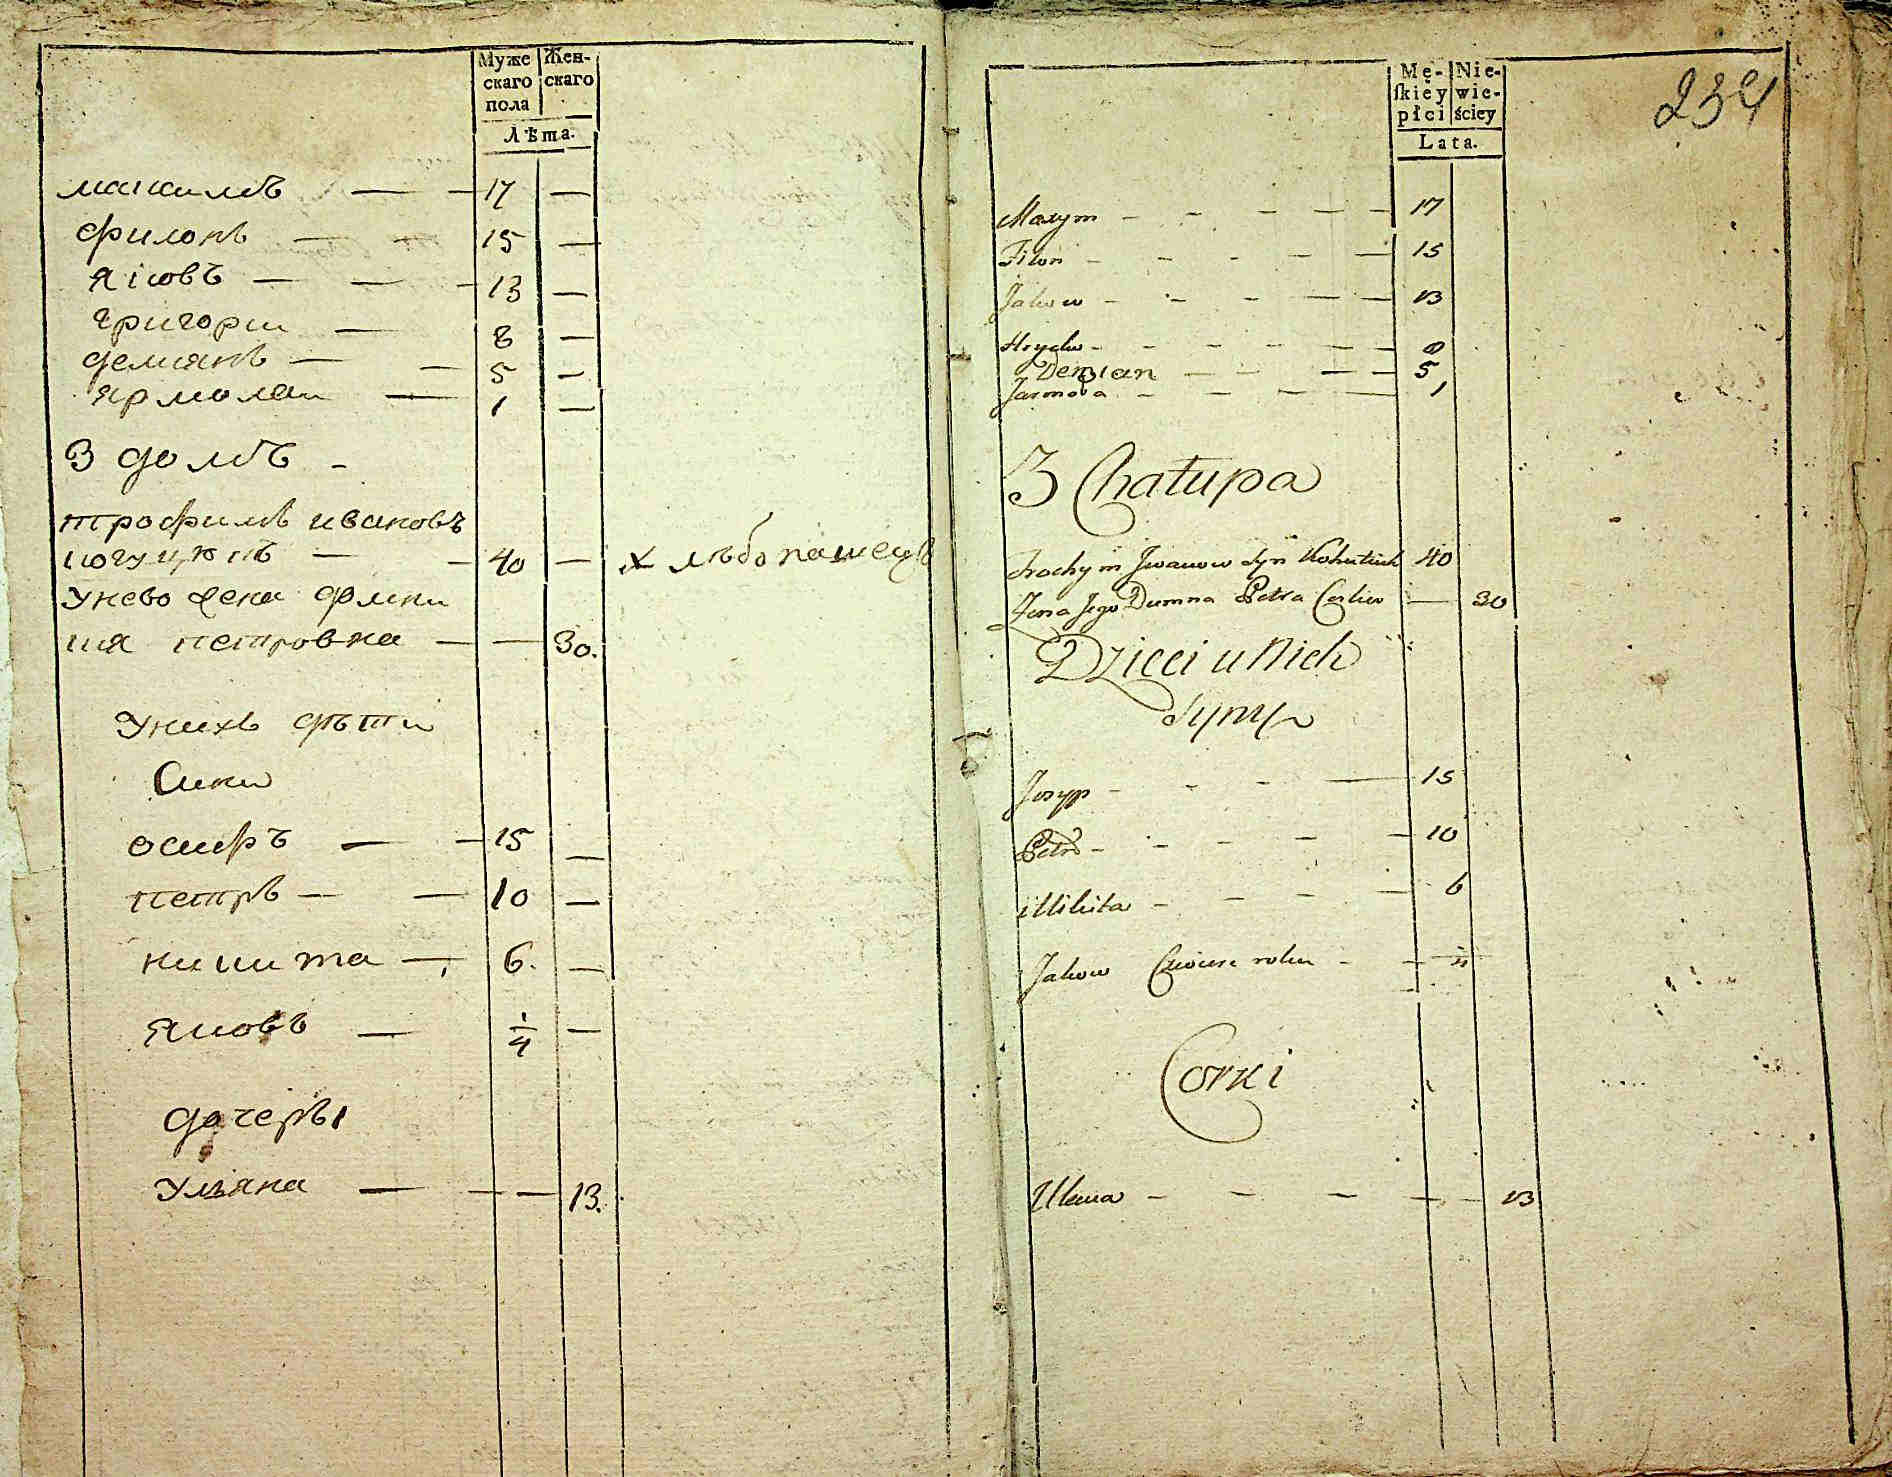 Муже
скаго
пола
Жен-
скаго
Лѣта.
максимъ — — 17 —
филопъ — — 15 —
яковъ — — — 13 —
григории — 8 —
демianъ — — 5 —
ярмолаи — 1 —
3 домъ -
трофимъ ивановъ
когуцюкъ — — 40 — хлѣбопашецъ
унево жена домни
кия петровна — — 30.
унихъ дѣти
Сини
осиръ — — 15 —
петръ — — 10 —
никита — 6. —
яковъ — 1/4 —
дочеры
ульяна — — — 13.
234
Mę-
ſkiey
płci
Nie-
wie-
ściey
Lata.
Maxym - - - - - 17
Filon - - - - - 15
Jakow - - - - - 13
Hryćko - - - - - 8
Demian - - - - 5
Jarmoła - - - - 1
3 Chałupa
Trochym Jwanow Syn Kohuciuk 40
Żona Jego Dumna Petra Corka — 30
Dzieci u Nich
Syny
Josyp - - - — 15
Petro - - - - - 10
Mikita - - - - 6
Jakow Czwierć roku - - "
Corki
Ulana - - - - - 13